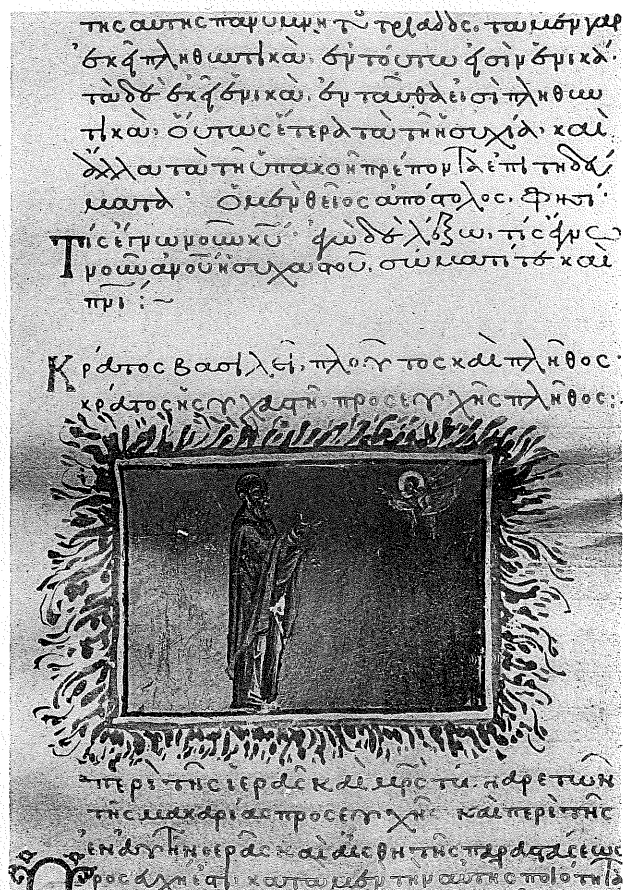 τῆς αὐτῆς πανυμνή τοῦ τριάδος. τὰ μὲν γὰρ
ἐκεῖ πληθυντικὰ. ἐν τούτω εἰσὶν ἑνικά·
τὰ δὲ ἐκεῖ ἑνικὰ. ἐνταῦθα εἰσὶ πληθυν
τικά· οὕτως ἕτερα τὰ τῆ ἡσυχία· καὶ
ἄλλα τὰ τῆ ὑπακοῆ πρέποντα ἐπιτηδεύ
ματα· ὁ μὲν θεῖος ἀπόστολος. φησί·
Τίς ἔγνω νοῦν κυ· ἐγὼ δὲ λέξω, τίς ἔγνω
νοῦν ἀνου ἡσυχαστοῦ. σώματί τε καὶ
πνι :~
Κράτος βασιλεῖ, πλοῦτος καὶ πλῆθος·
κράτος ἡσυχαστῆ, προσευχῆς πλῆθος:
περὶ τῆς ἱερᾶς καὶ μρς τῶν ἀρετῶν
τῆς μακαρίας προσευχῆς καὶ περὶ τῆς
ἐν αὐτῆ νοερᾶς καὶ αἰσθητῆς παραστάσεως
Προσευχή ἐστι κατὰ μὲν τὴν αὐτῆς ποιότητα